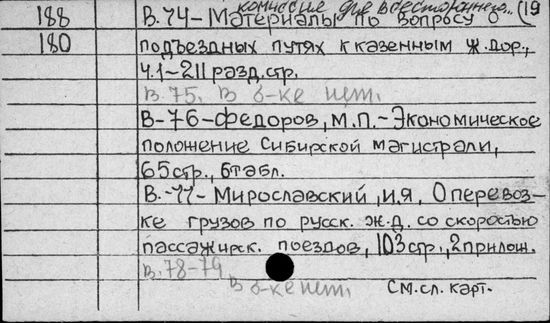 комиссие для всестороннего... (19
188 В.74-Материалы по вопросу о
180 подъездных путях к казенным ж.дор.,
ч.1-211 разд.стр.
В.75. В б-ке нет.
В-76-Федоров, М.П.-Экономическое
положение Сибирской магистрали,
65стр., 6табл.
В.-77-Мирославский, И.Я, О перевоз-
ке грузов по русск. ж.д. со скоростью
пассажирск. поездов, 103стр., 2прилож.
В.78-79
В б-ке нет.
См.сл. карт.